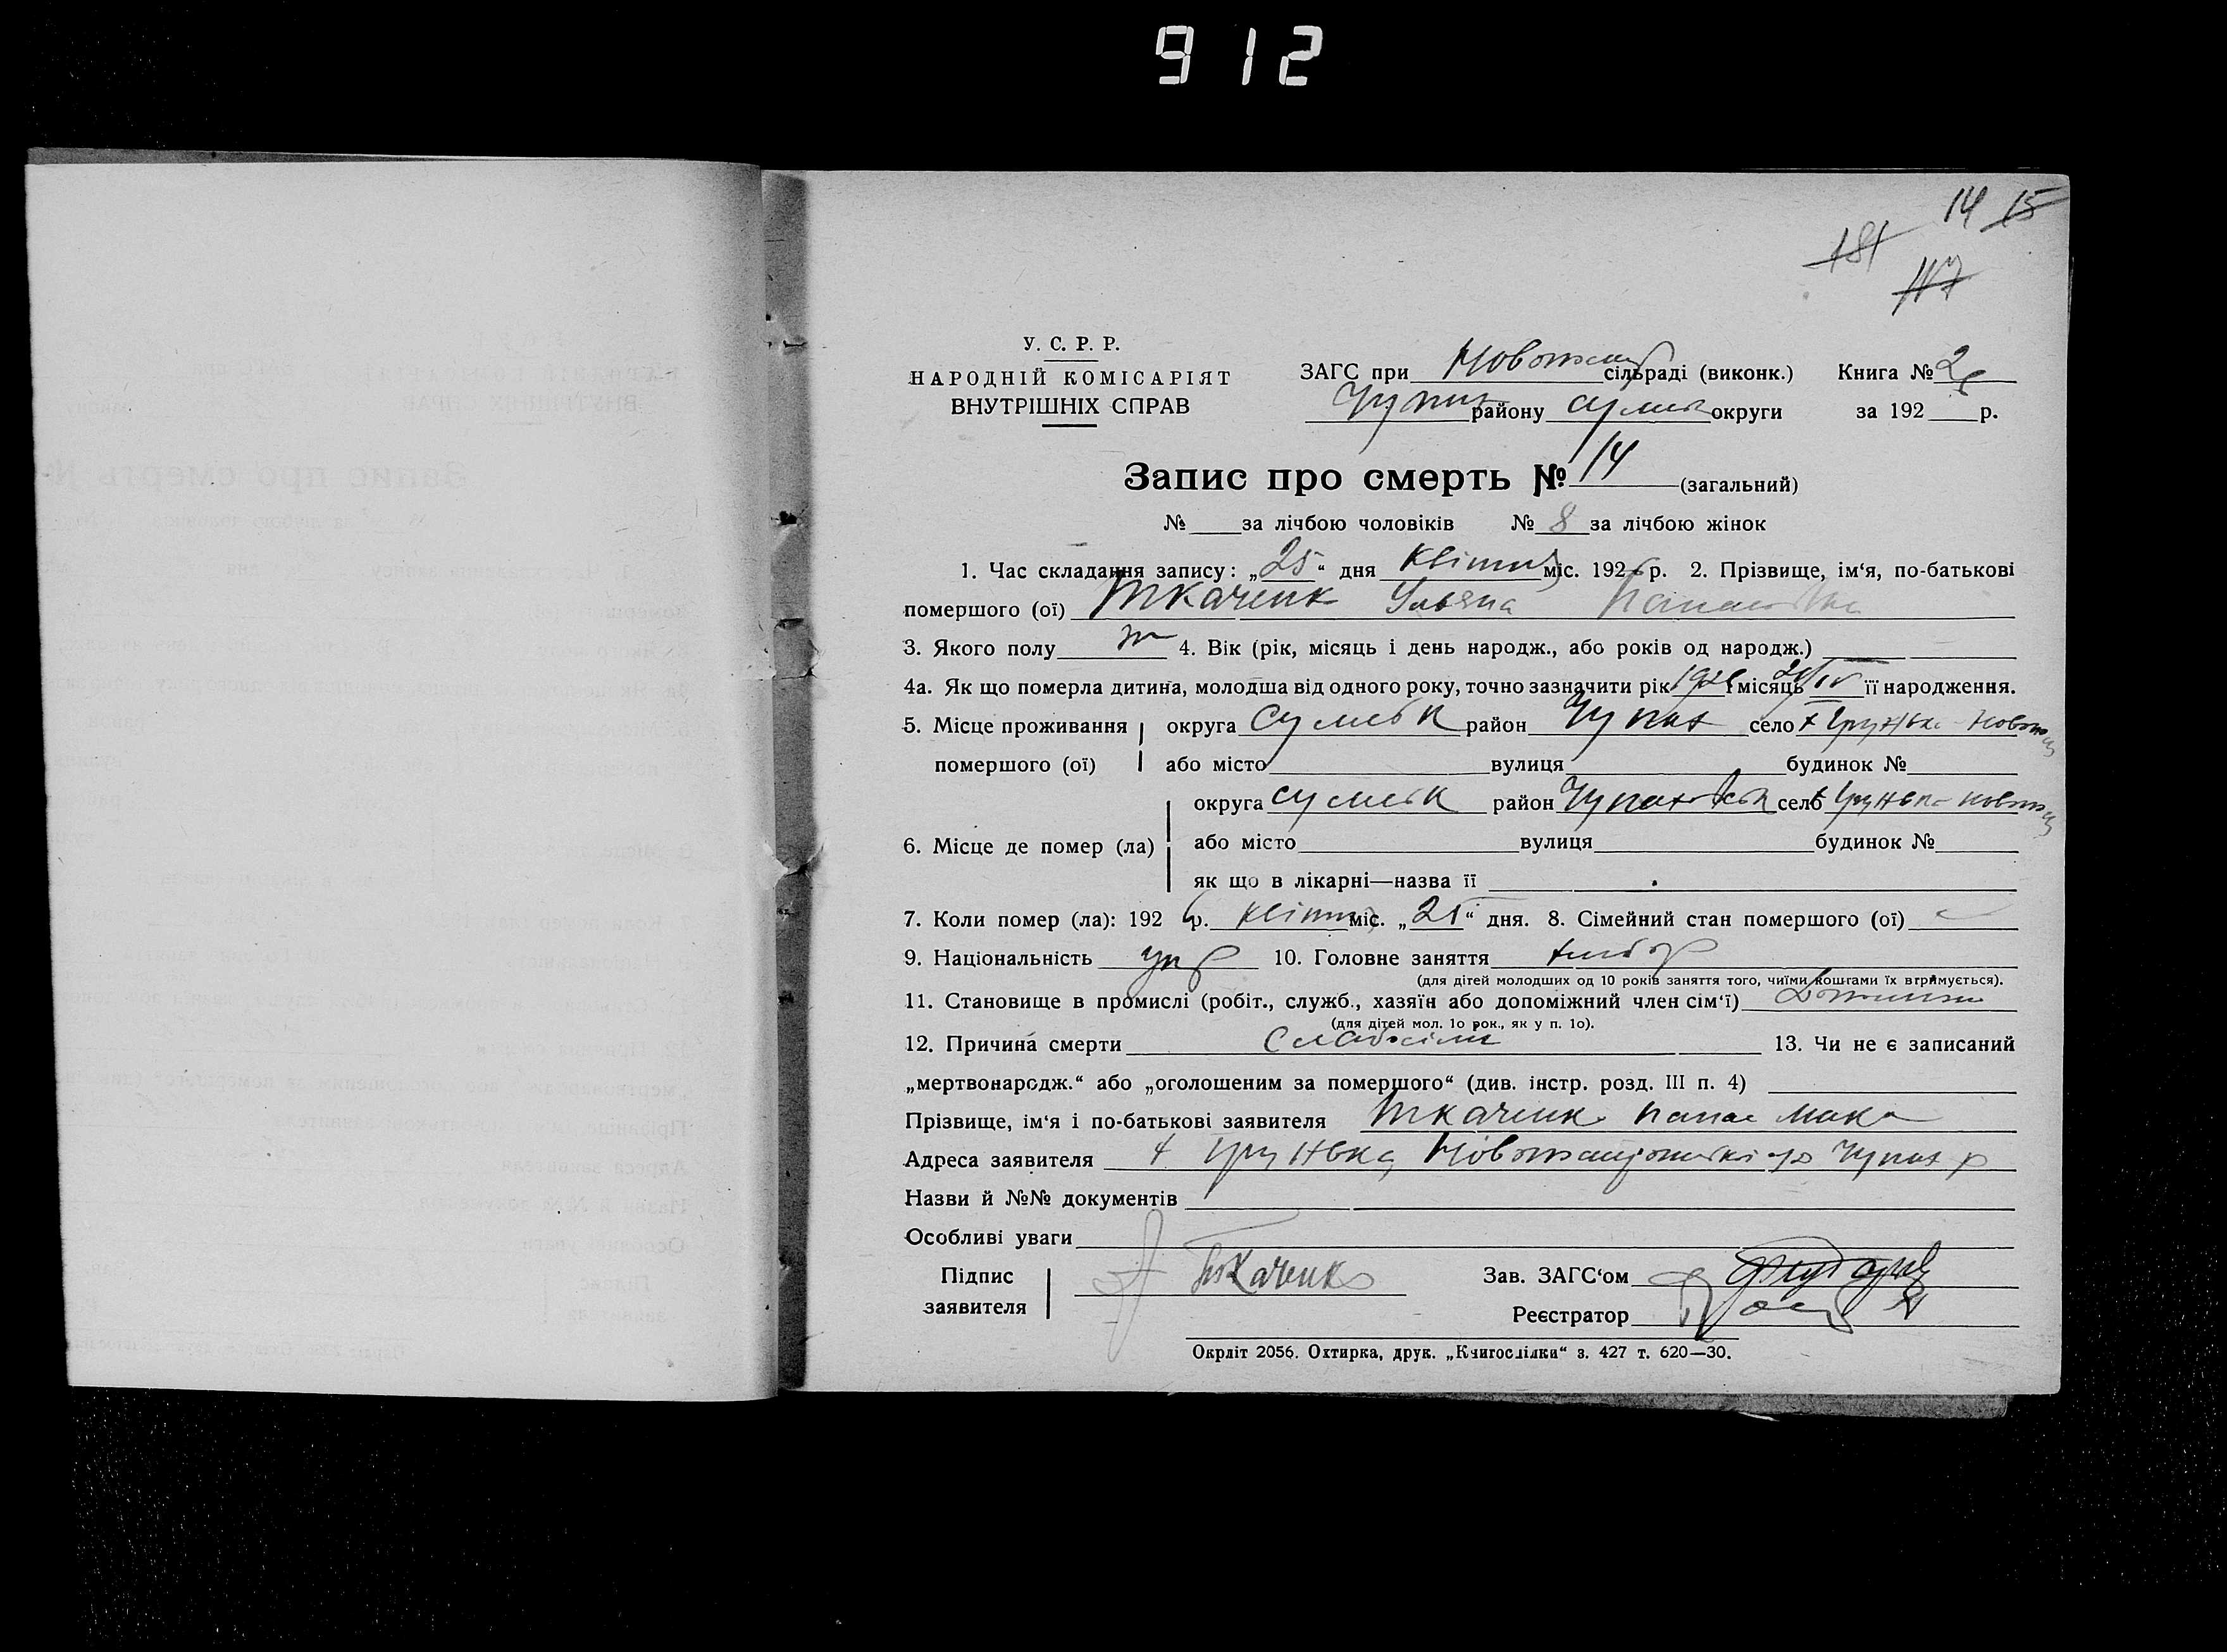 912
14 15
181
117
У. С. Р. Р.
НАРОДНІЙ КОМІСАРІЯТ
ВНУТРІШНІХ СПРАВ
ЗАГС при сільраді (виконк.) Книга № 2
Чупах району Сумськ округи за 192 р.
Запис про смерть № 14 (загальний)
№ за лічбою чоловіків № 8 за лічбою жінок
1. Час складання запису: „25“ дня Квітня міс. 1926 р. 2. Прізвище, ім‘я, по-батькові
помершого (ої) Ткаченк Уляна Панасівна
3. Якого полу ж 4. Вік (рік, місяць і день народж., або років од народж.)
4а. Як що померла дитина, молодша від одного року, точно зазначити рік 1926 місяць IV її народження.
5. Місце проживання округа Сумськ район Чупах село х Грунька
помершого (ої) або місто вулиця будинок №
округа Сумськ район Чупахівськ село х Грунька
6. Місце де помер (ла) або місто вулиця будинок №
як що в лікарні—назва її
7. Коли помер (ла): 1926 р. Квітня міс. „25“ дня. 8. Сімейний стан помершого (ої)
9. Національність укр 10. Головне заняття хлібор
(для дітей молодших од 10 років заняття того, чиїми коштами їх втримується).
11. Становище в промислі (робіт., служб., хазяїн або допоміжний член сім‘ї)
(для дітей мол. 1о рок., як у п. 1о).
12. Причина смерти Слабосіля 13. Чи не є записаний
„мертвонародж.“ або „оголошеним за помершого“ (див. інстр. розд. III п. 4)
Прізвище, ім‘я і по-батькові заявителя Ткаченк Панас Мака
Адреса заявителя х Грунька Чупах р
Назви й №№ документів
Особливі уваги
Підпис Ткаченко Зав. ЗАГС‘ом
заявителя Реєстратор
Окрліт 2056. Охтирка, друк. „Книгоспілки“ з. 427 т. 620—30.